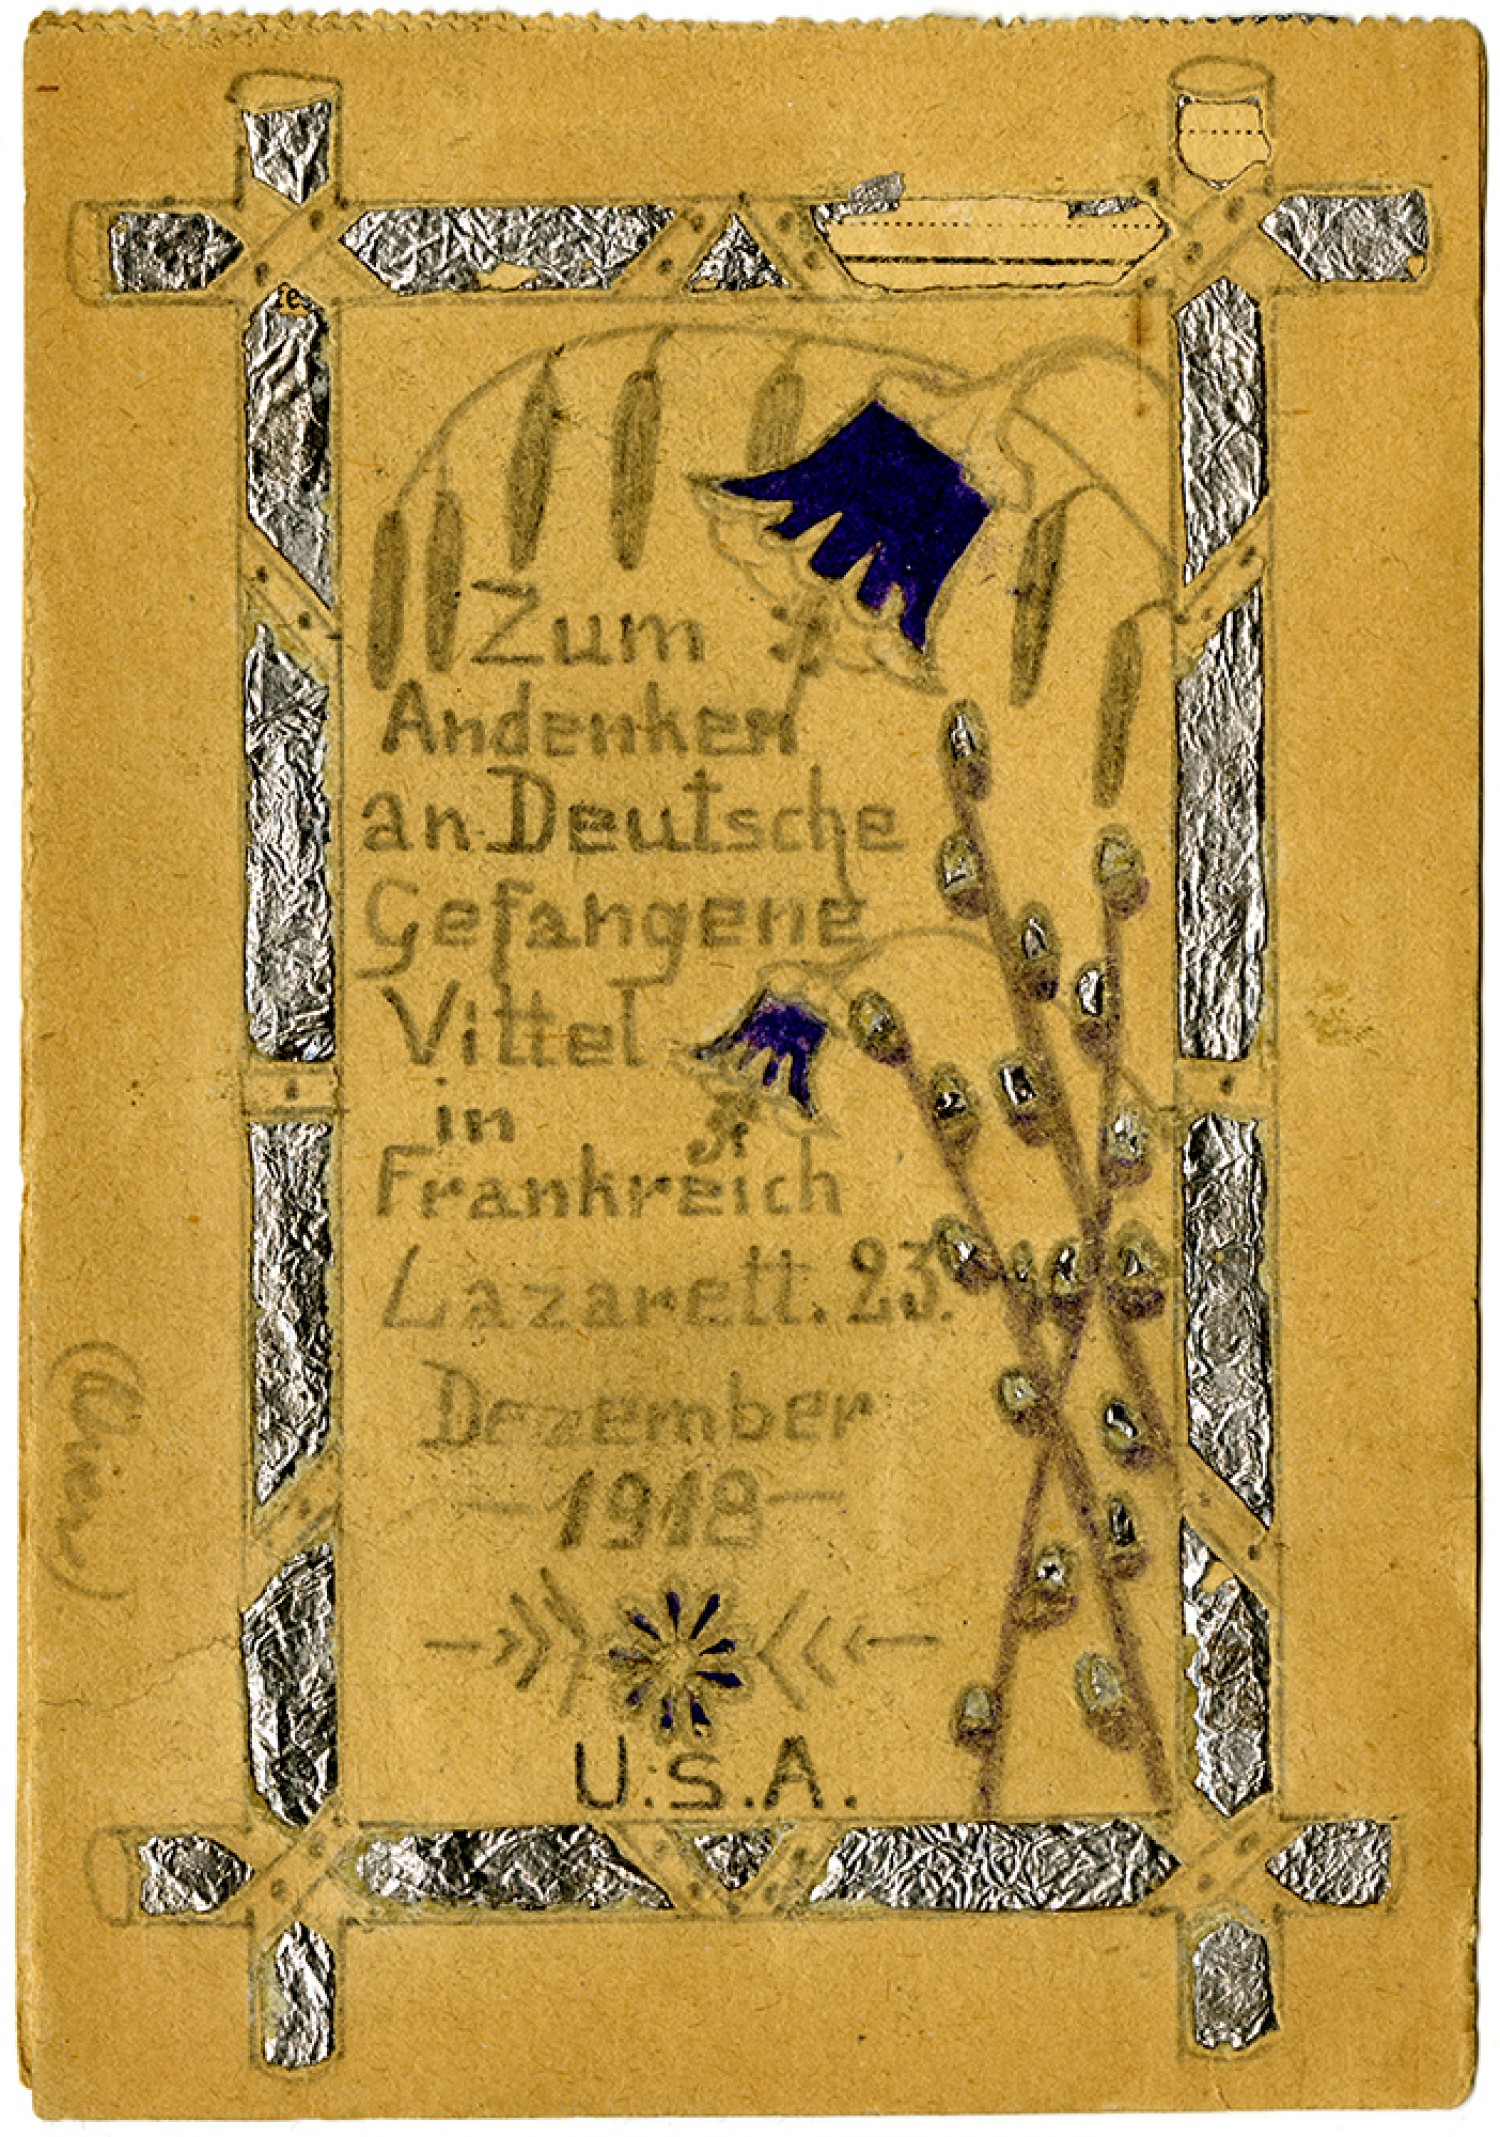 Zum
Andenken
an Deutsche
Gefangene
Vittel
in
Frankreich
Lazarett. 23.
Dezember
— 1918 —
U.S.A.